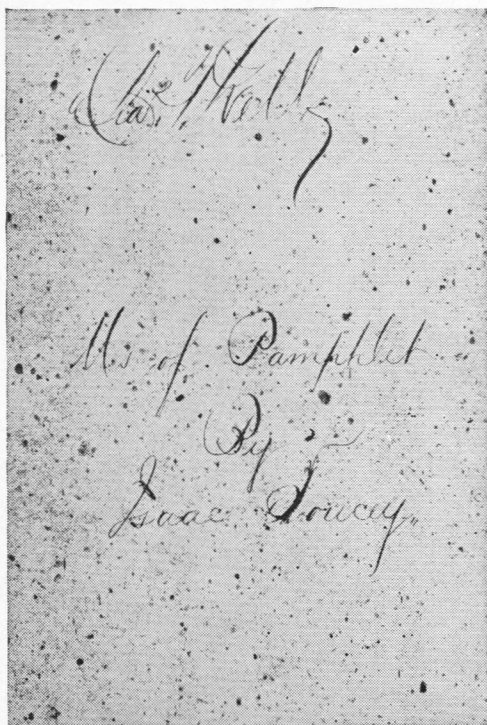 Chas. T. Webb
Ms of Pamphlet
By
Isaac Soucey